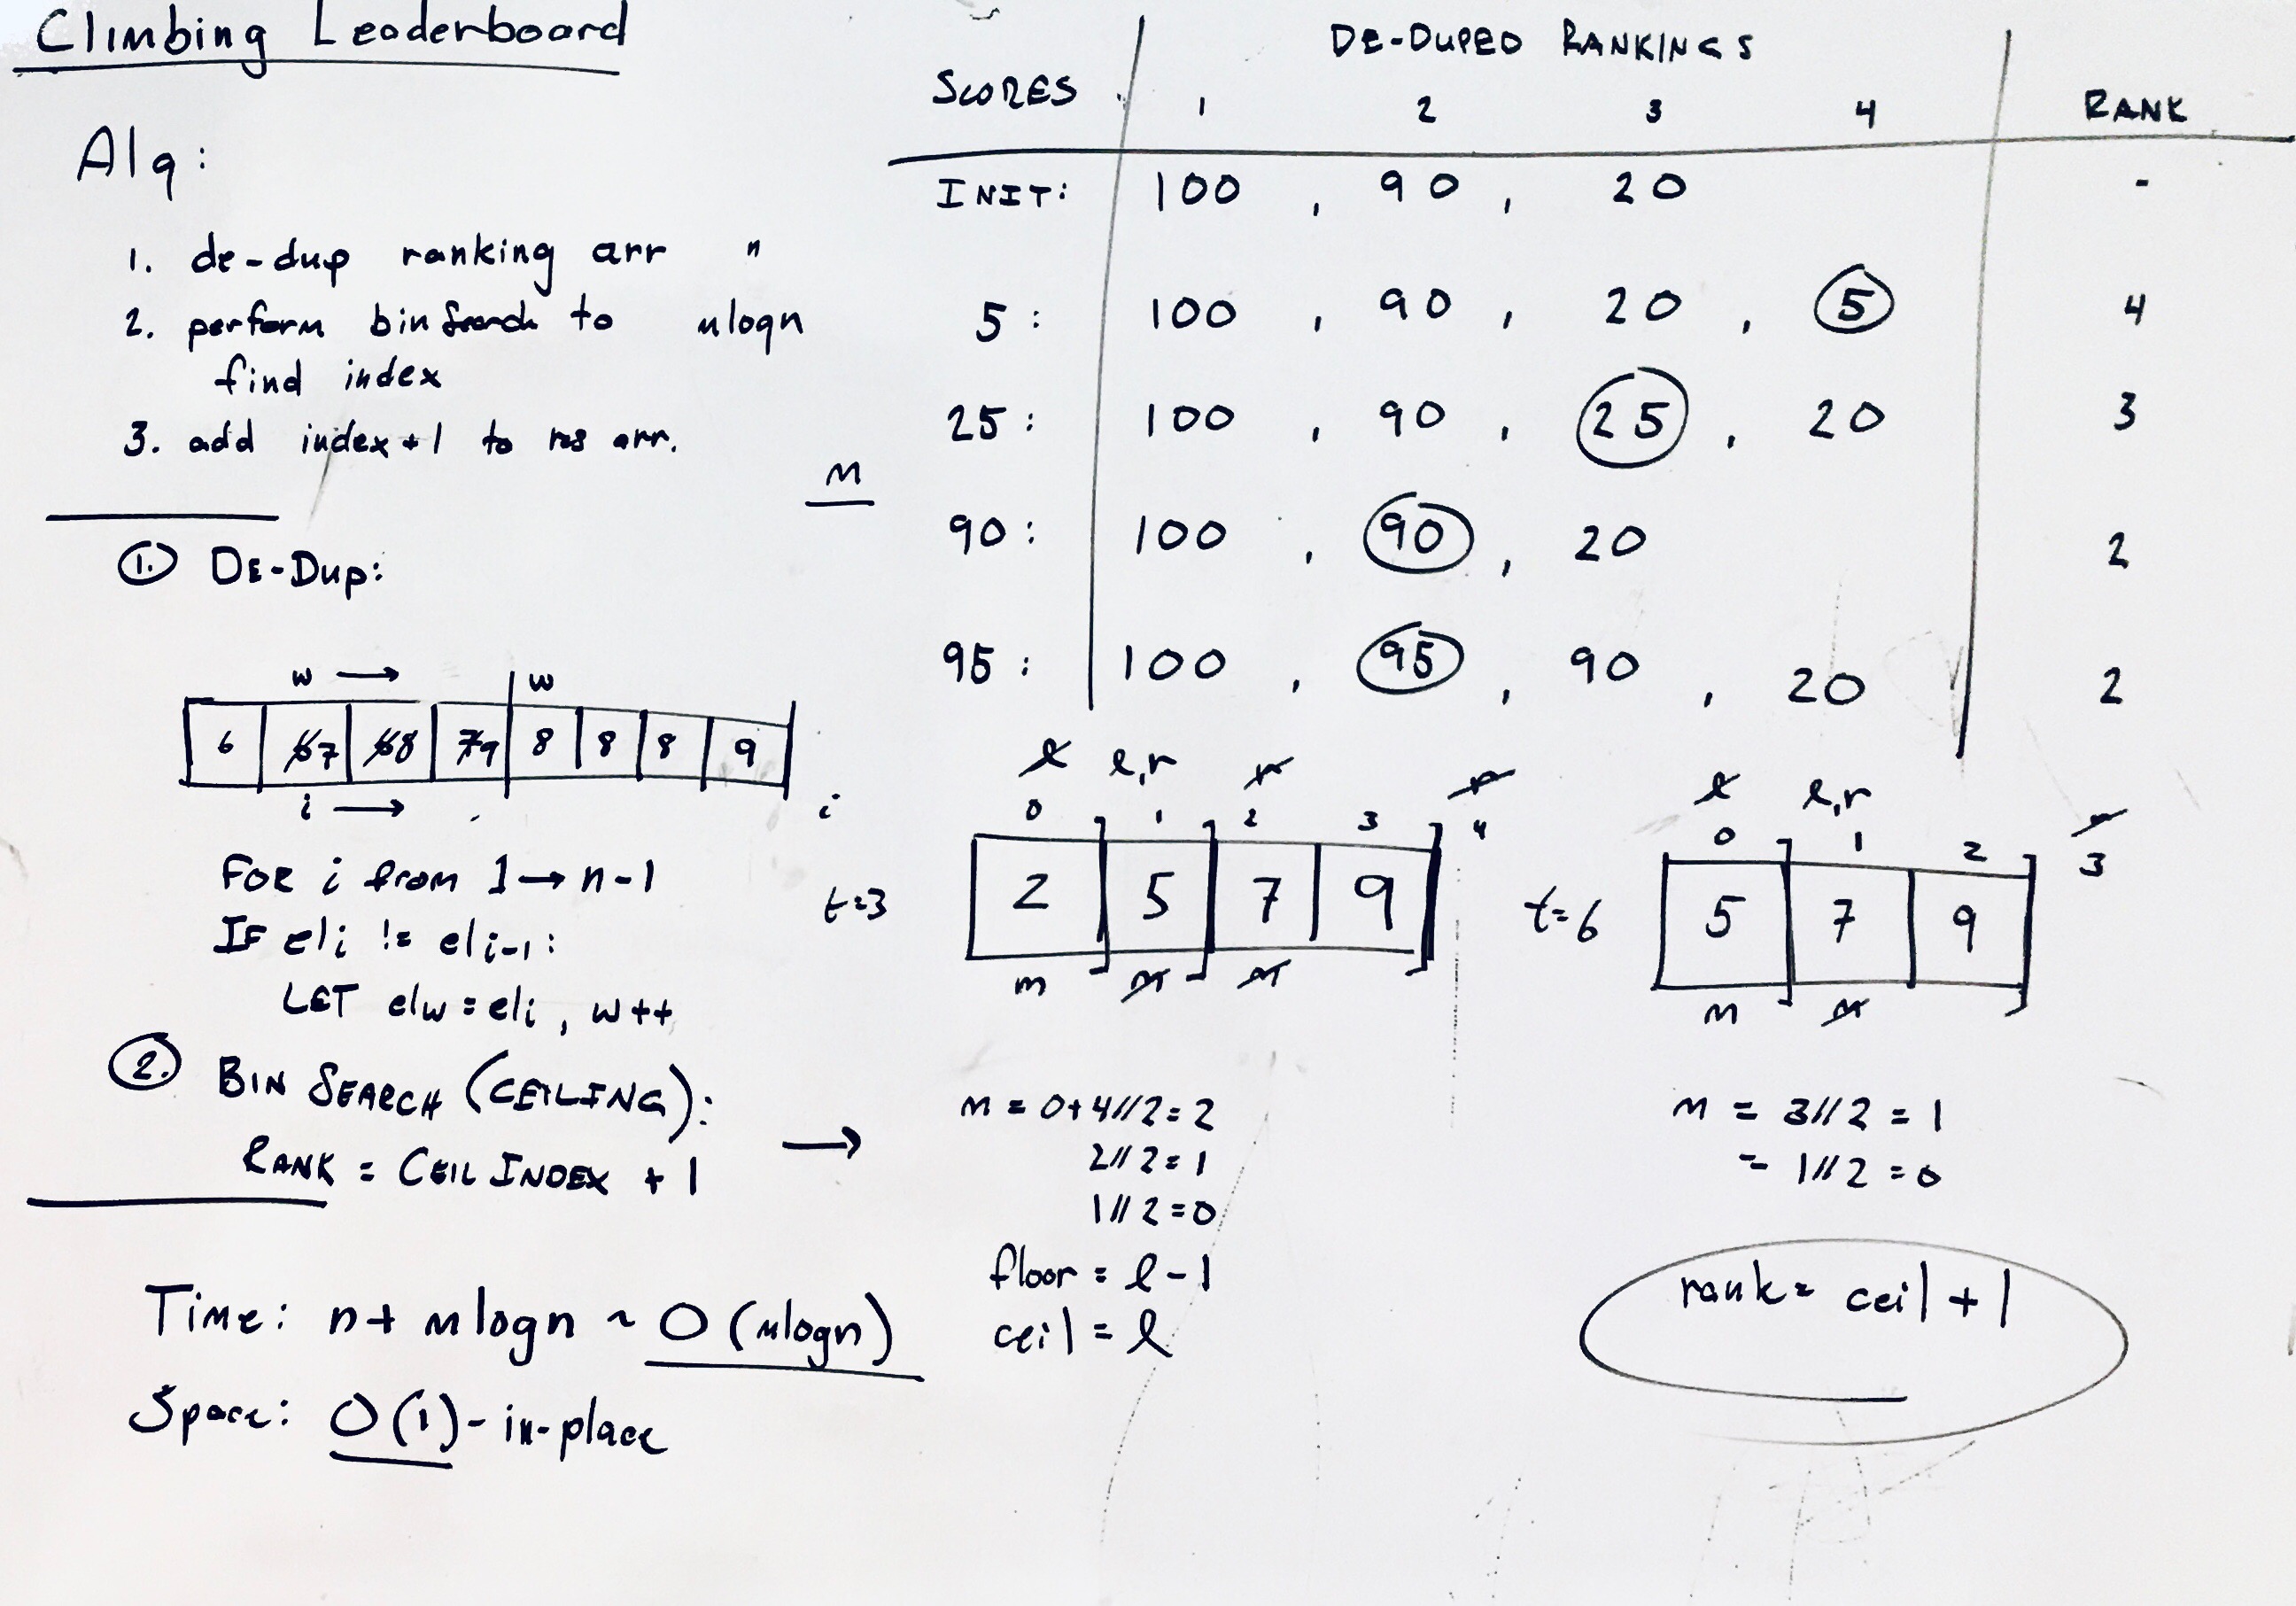 Climbing Leaderboard
Alg:
1. de-dup ranking arr n
2. perform bin Search to mlogn
find index
3. add index+1 to res arr.
M
① DE-DUP:
w → w
6 67 68 79 8 8 8 9
i → i
FOR i from 1→n-1
IF eli != eli-1:
LET elw = eli, w++
②. BIN SEARCH (CEILING): →
RANK = CEIL INDEX + 1
Time: n+ mlogn ~ O(mlogn)
Space: O(1) - in-place
DE-DUPED RANKINGS
SCORES 1 2 3 4 RANK
INIT: 100 , 90 , 20 -
5: 100 , 90 , 20 , 5 4
25: 100 , 90 , 25 , 20 3
90: 100 , 90 , 20 2
95: 100 , 95 , 90 , 20 2
l l,r r r
0 1 2 3 4
t=3 2 5 7 9
m m m
m = 0+4//2=2
2//2=1
1//2=0
floor = l-1
ceil = l
l l,r r
0 1 2 3
t=6 5 7 9
m m
m = 3//2 = 1
= 1//2 = 0
rank= ceil + 1